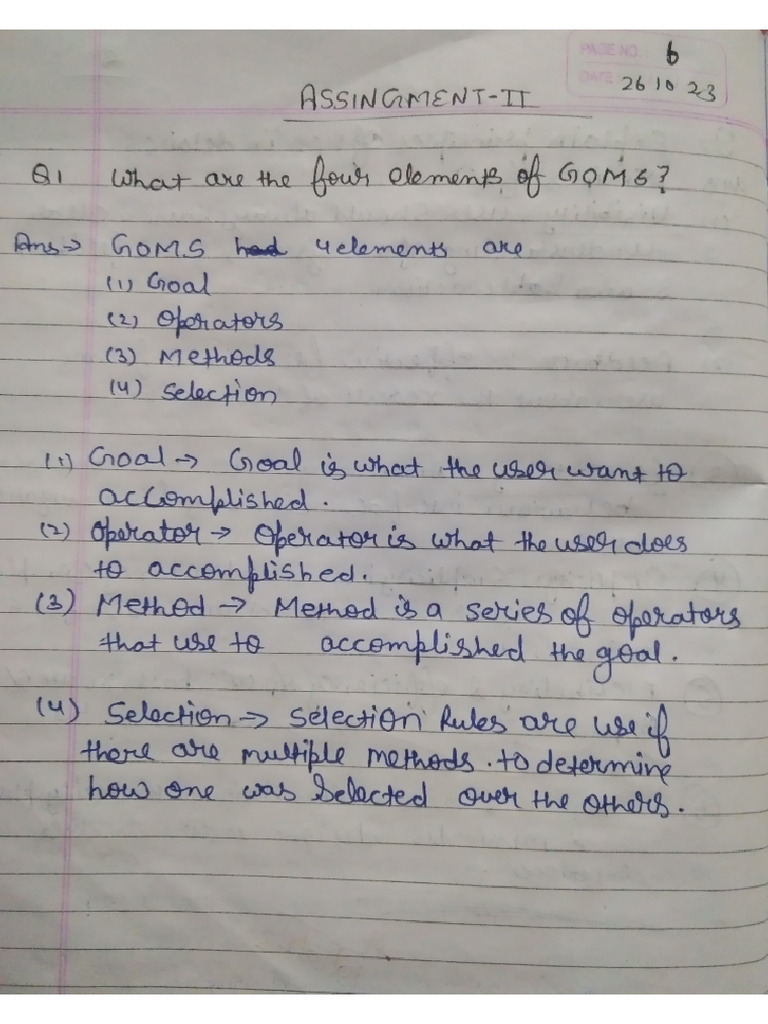 PAGE NO. 6
DATE 26 10 23
ASSINGMENT-II
Q1 What are the four elements of GOMS?
Ans→ GOMS had 4 elements are
(1) Goal
(2) Operators
(3) Methods
(4) Selection
(1) Goal → Goal is what the user want to
accomplished.
(2) Operator → Operator is what the user does
to accomplished.
(3) Method → Method is a series of operators
that use to accomplished the goal.
(4) Selection → Selection Rules are use if
there are multiple methods. to determine
how one was Selected over the others.